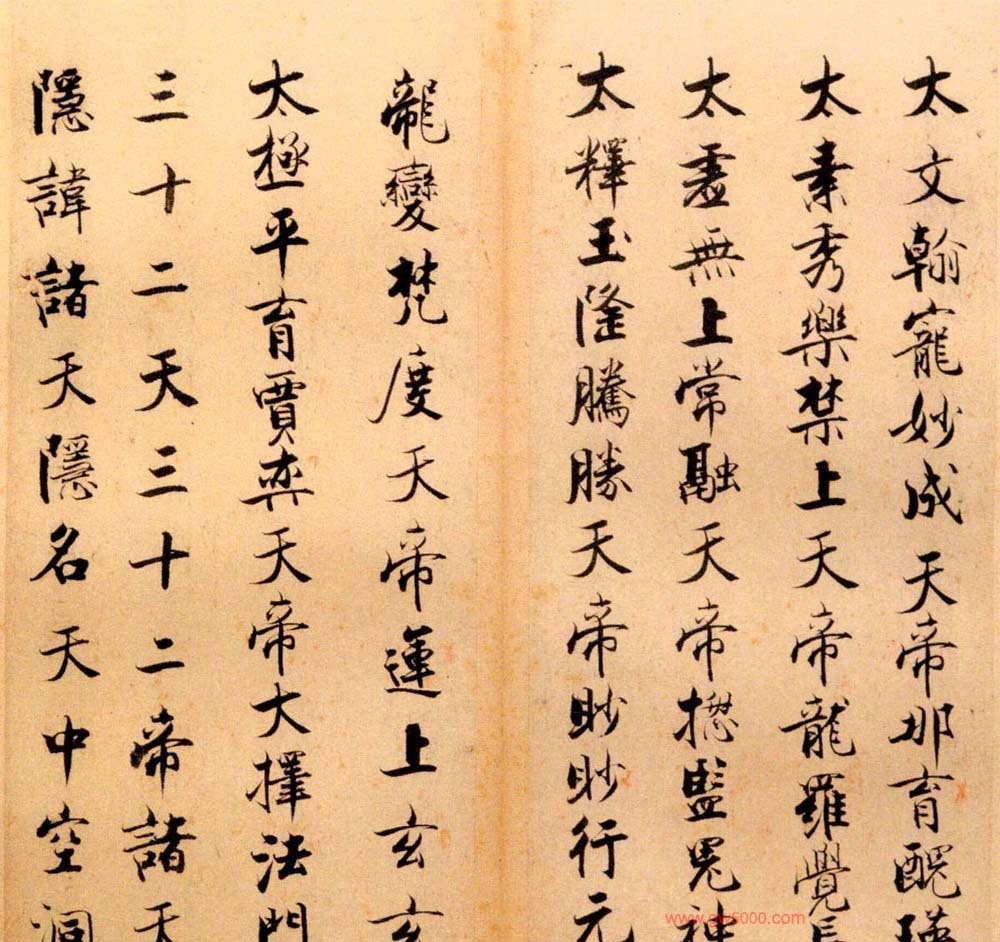 太文翰寵妙成天帝那育醜瑛
太素秀樂禁上天帝龍羅覺長
太虛無上常融天帝摠監鬼神
太釋玉隆騰勝天帝眇眇行元
龍變梵度天帝運上玄玄
太極平育賈奕天帝大擇法門
三十二天三十二帝諸天
隱諱諸天隱名天中空洞